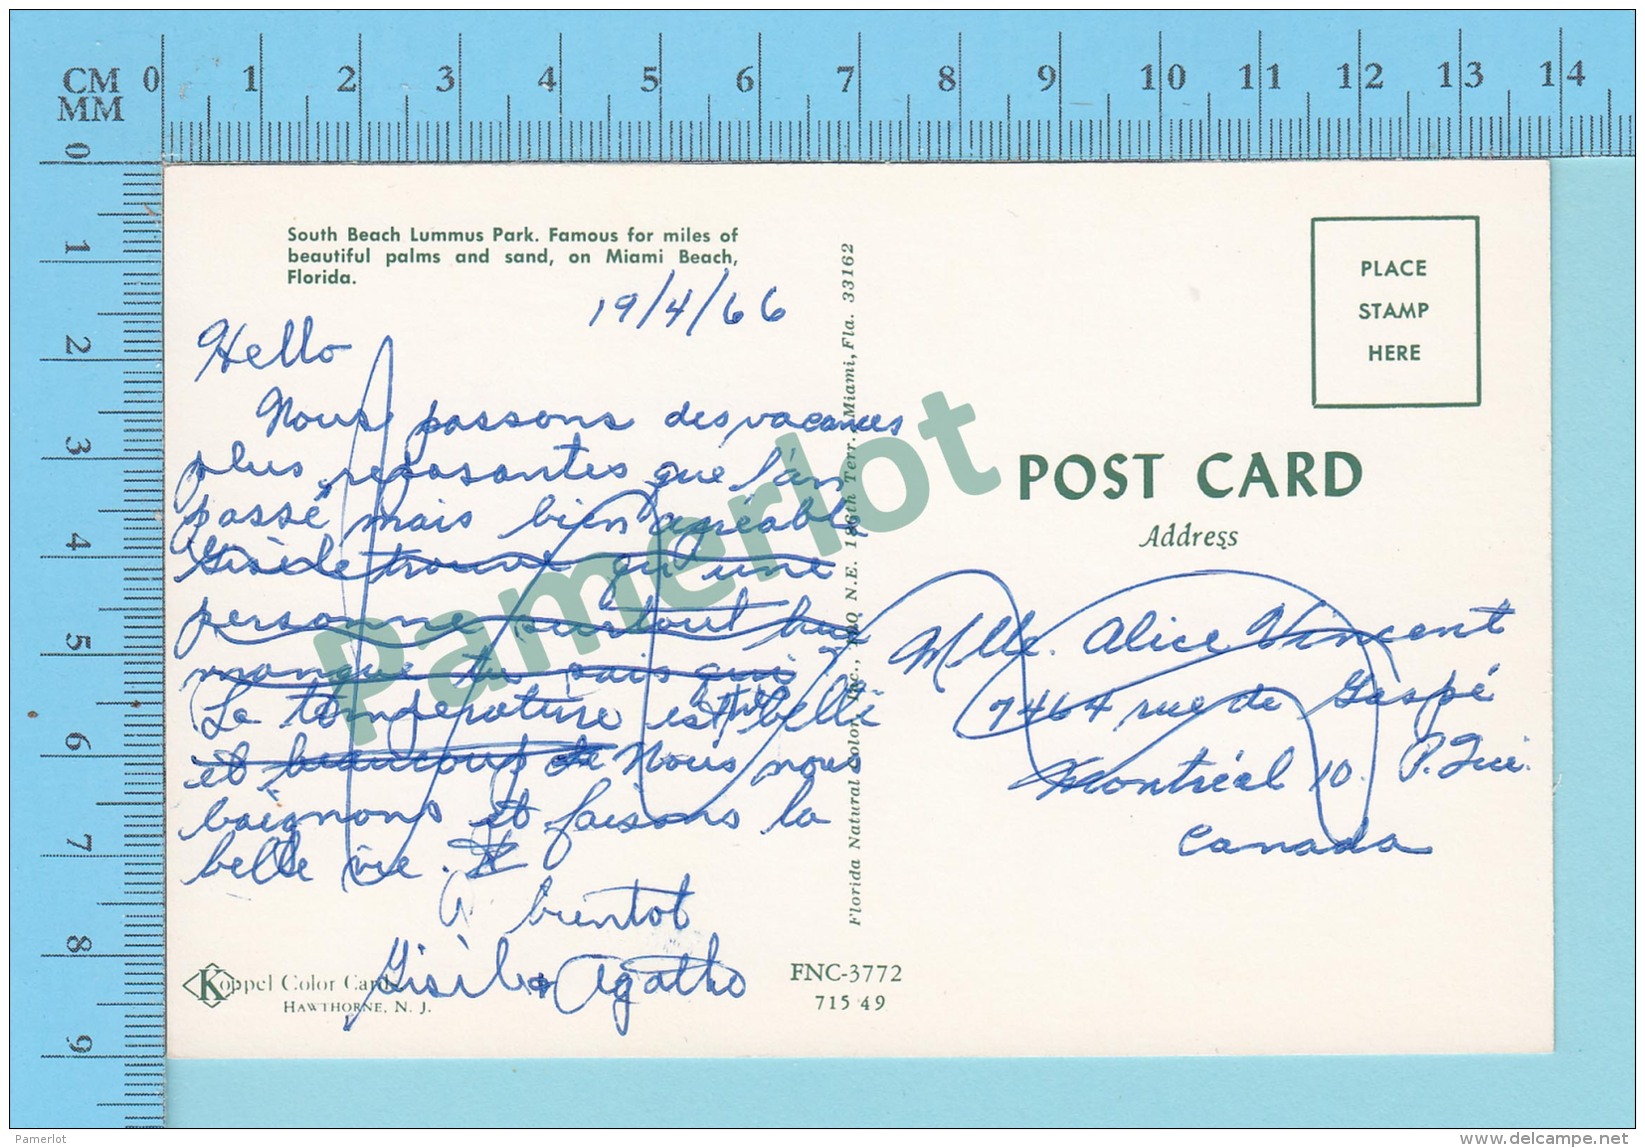 CM 0 1 2 3 4 5 6 7 8 9 10 11 12 13 14
MM
0
1
2
3
4
5
6
7
8
9
South Beach Lummus Park. Famous for miles of
beautiful palms and sand, on Miami Beach,
Florida.
19/4/66
Hello
Nous passons des vacances
plus reposantes que l'an
passé mais bien agréable
Gisèle trouve qu'une
personne surtout lui
manque tu sais qui
La température est très belle
et beaucoup de Nous nous
baignons et faisons la
belle vie.
A bientot
Gisèle & Agatho
Koppel Color Cards
HAWTHORNE, N. J.
FNC-3772
71549
Florida Natural Color, Inc., 100 N.E. 186th Terr., Miami, Fla. 33162
PLACE
STAMP
HERE
POST CARD
Address
Mlle. Alice Vincent
7464 rue de Gaspé
Montréal 10. P. Qué.
Canada
Pamerlot
Pamerlot
www.delcampe.net